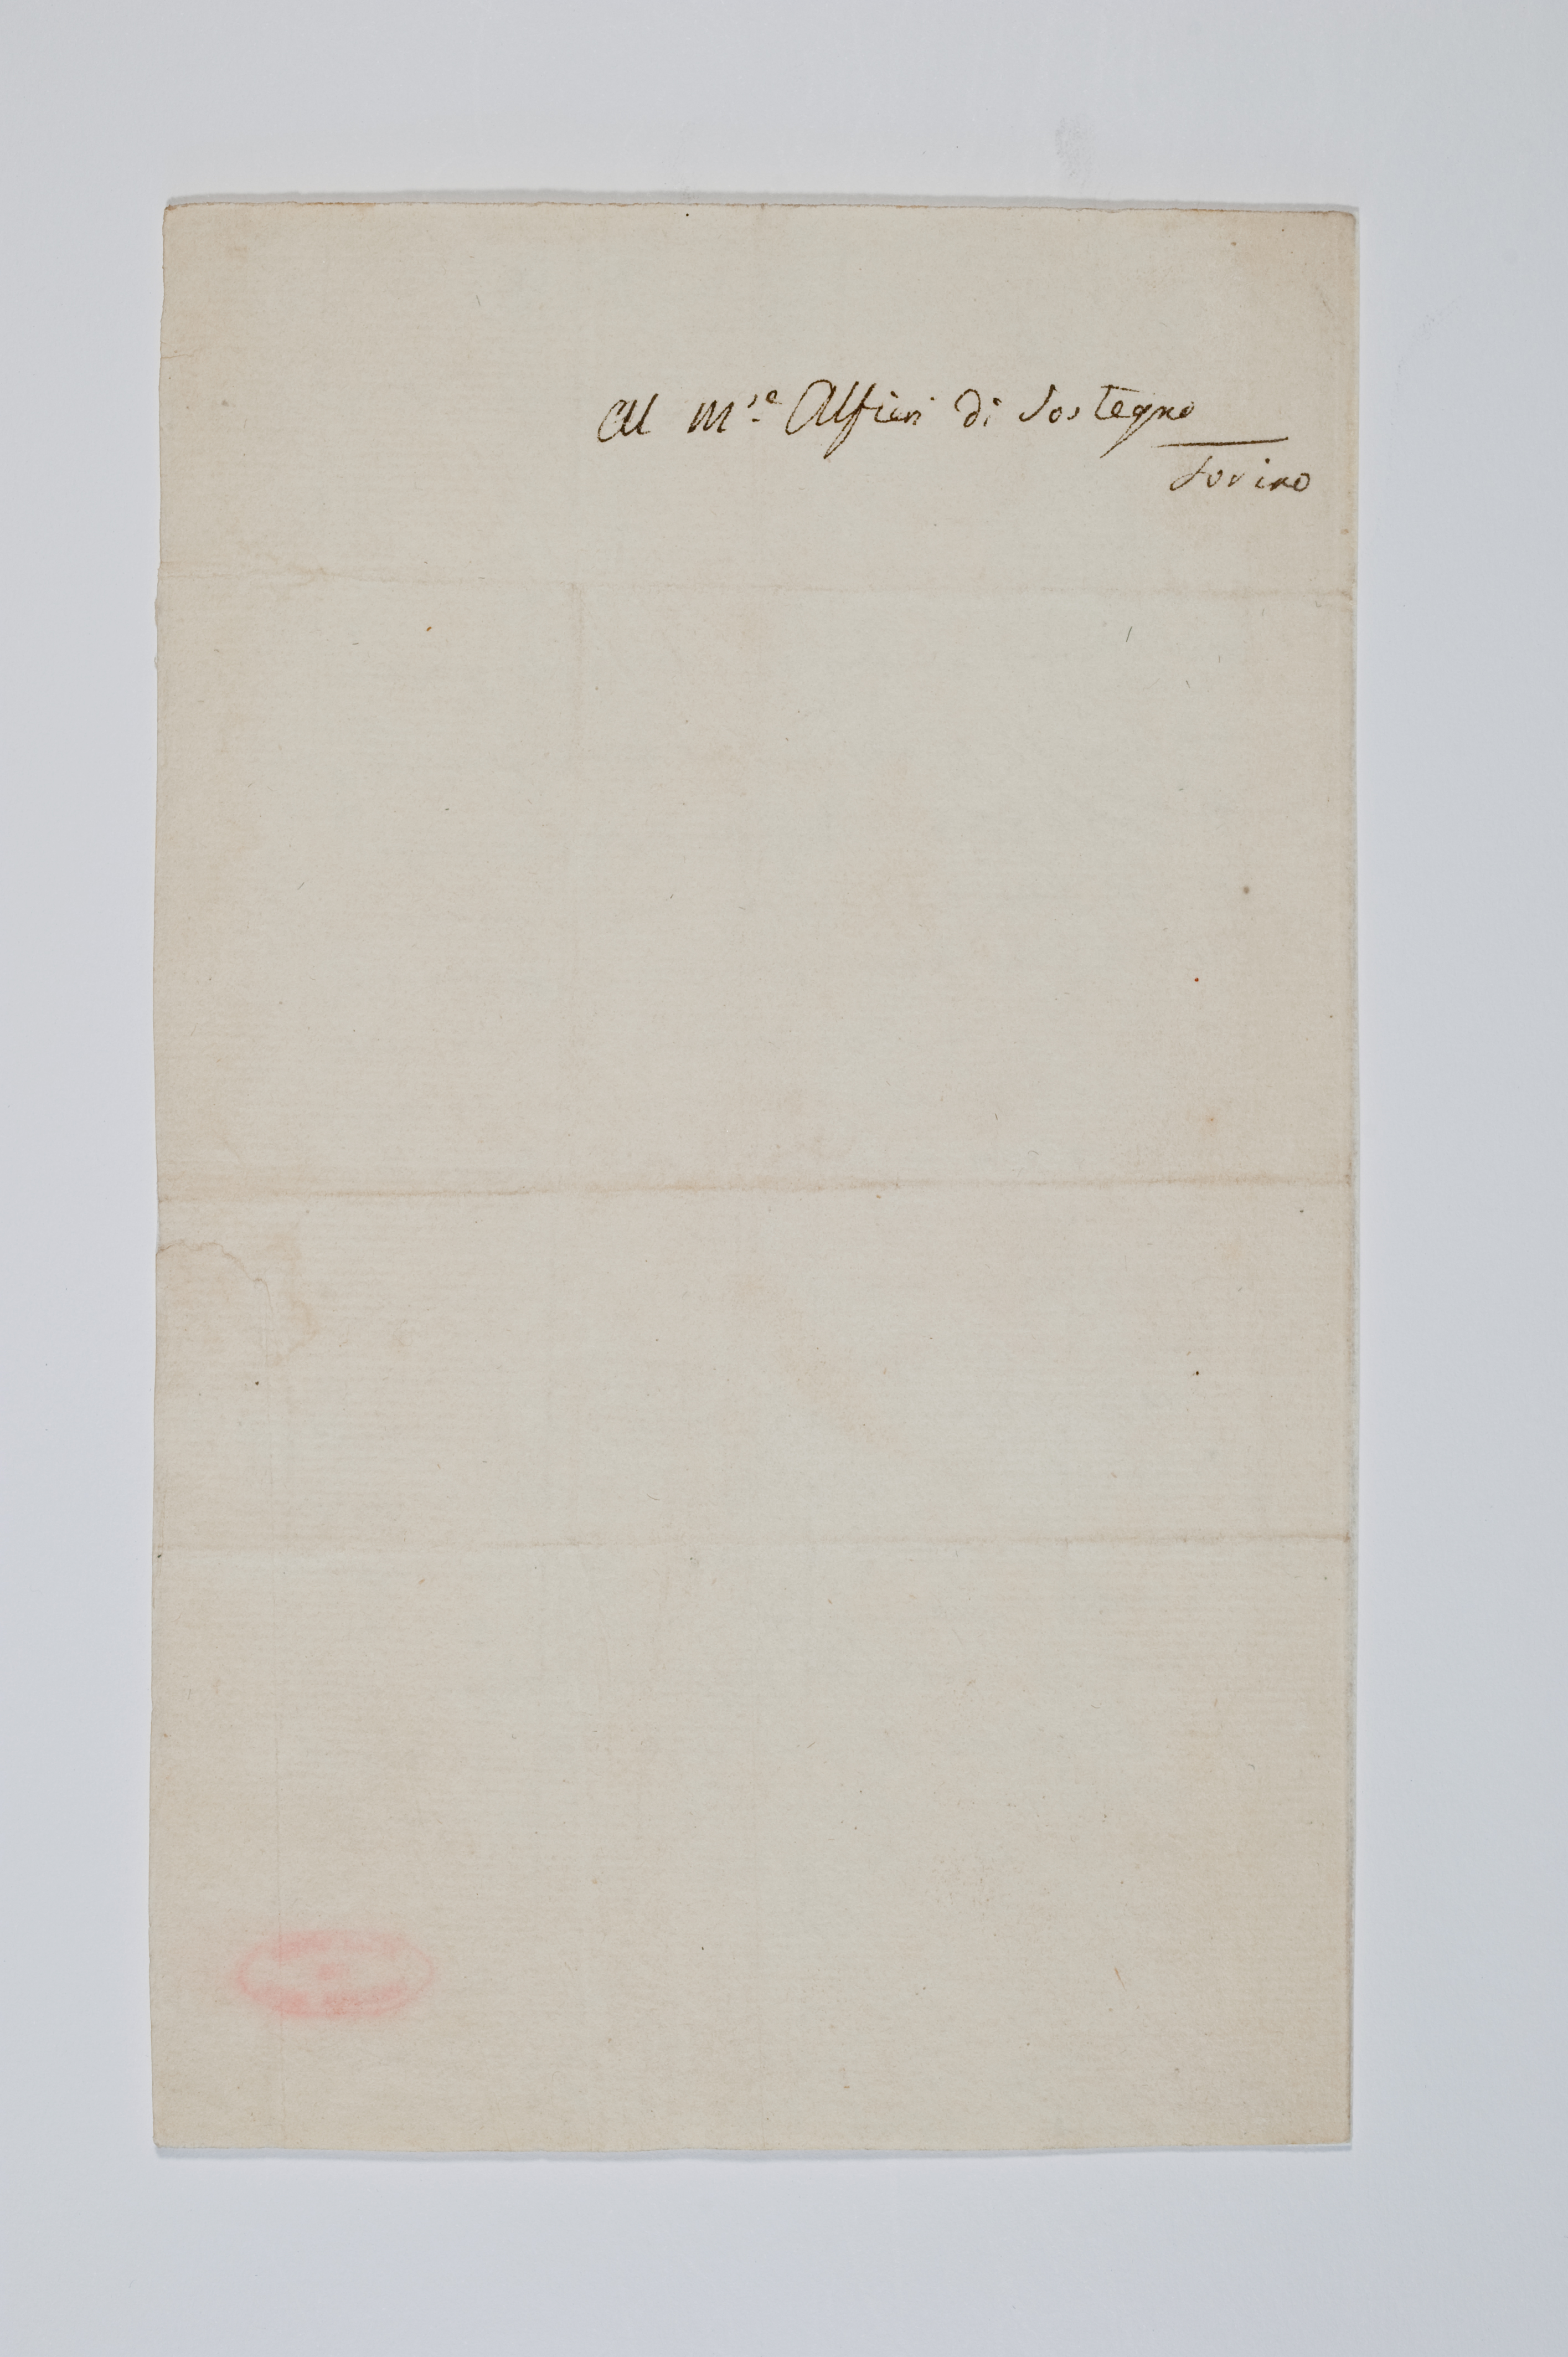 Al M.se Alfieri di Sostegno
Torino